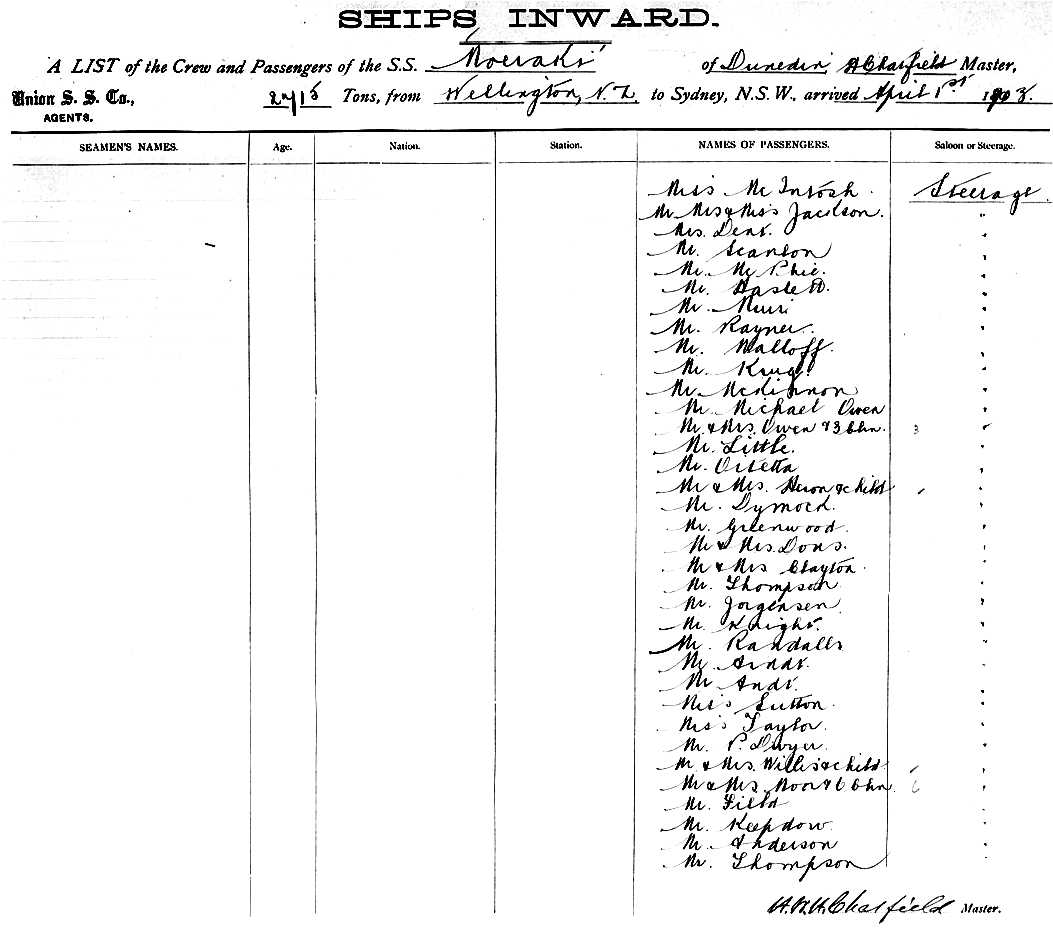 SHIPS INWARD.
A LIST of the Crew and Passengers of the S.S. Moeraki of Dunedin, Chatfield Master,
Union S. S. Co., 2715 Tons, from Wellington, N.Z. to Sydney, N.S.W., arrived April 1st 1903.
AGENTS.
SEAMEN'S NAMES. Age. Nation. Station. NAMES OF PASSENGERS. Saloon or Steerage.
Miss McIntosh. Steerage.
Mr Mrs & Miss Jackson. "
Mrs. Dent. "
Mr. Scanlon "
Mr. McPhie. "
Mr. Haslett. "
Mr. Muir "
Mr. Rayner. "
Mr. Malloff. "
Mr. Krug. "
Mr. McKinnon "
Mr. Michael Owen "
Mr. & Mrs. Owen & 3 Chn. 3 "
Mr. Little. "
Mr. "
Mr & Mrs. Heron & child "
Mr. Dymock. "
Mr. Greenwood. "
Mr & Mrs. Dons. "
Mr & Mrs Clayton. "
Mr. Thompson "
Mr. Jorgensen "
Mr. Knight. "
Mr. Randalls "
Mr Arndt. "
Mr Andt. "
Miss Sutton. "
Miss Taylor. "
Mr. P. Dwyer. "
Mr & Mrs. Willis & child. "
Mr & Mrs Moor & 6 Chn. 6 "
Mr. Field "
Mr. Keepdow. "
Mr. Anderson "
Mr. Thompson "
Chatfield Master.